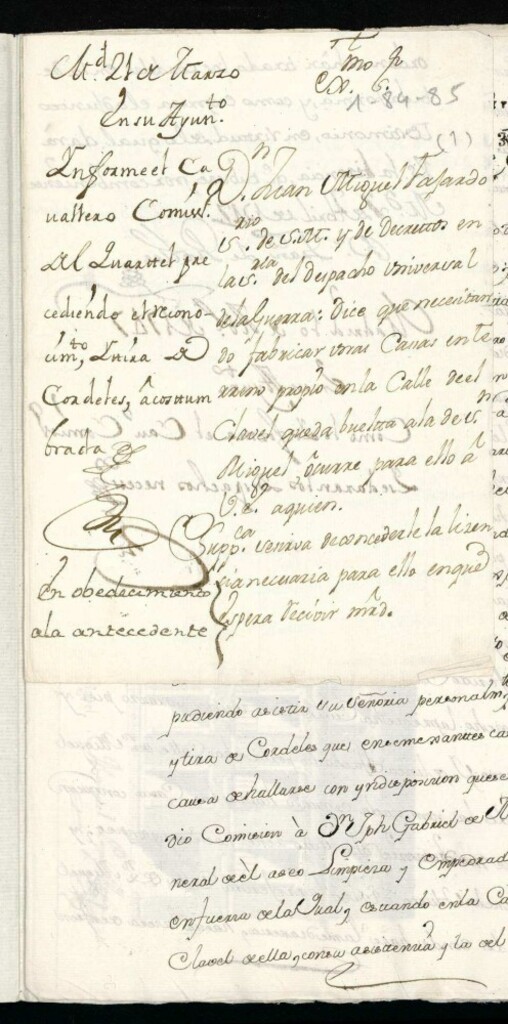 M.d 21 de Marzo
En su Ayun.to
Informe el Ca
vallero Comiss.
del Quartel pre
cediendo el recono-
cim.to, y tira de
Cordeles, acostum
brada
En obedecimiento
a la antecedente
Ill.mo S.r
1-84-85
(1)
D.n Juan Miguel Faxardo
s.rio de S.M. y de Decretos en
la s.ria del despacho universal
de la Guerra: Dice que necesitan
do fabricar unas Casas en te
rreno propio en la Calle de el
Clavel queda buelta a la de S.n
Miguel, ocurre para ello a
V.S. a quien.
Supp.ca se sirva de concederle la lizen
cia necesaria para ello en que
espera recivir mrd.
pudiendo asistir su señoria personalm
y tira de Cordeles que en semejantes ca
causa de hallarse con yndisposicion que se
dio Comision à D.n Jph Gabriel de
neral de el aseo Limpieza y Empedrad
en fuerza de la Qual, y estando en la Ca
Clavel de ella, con su asistencia y la del